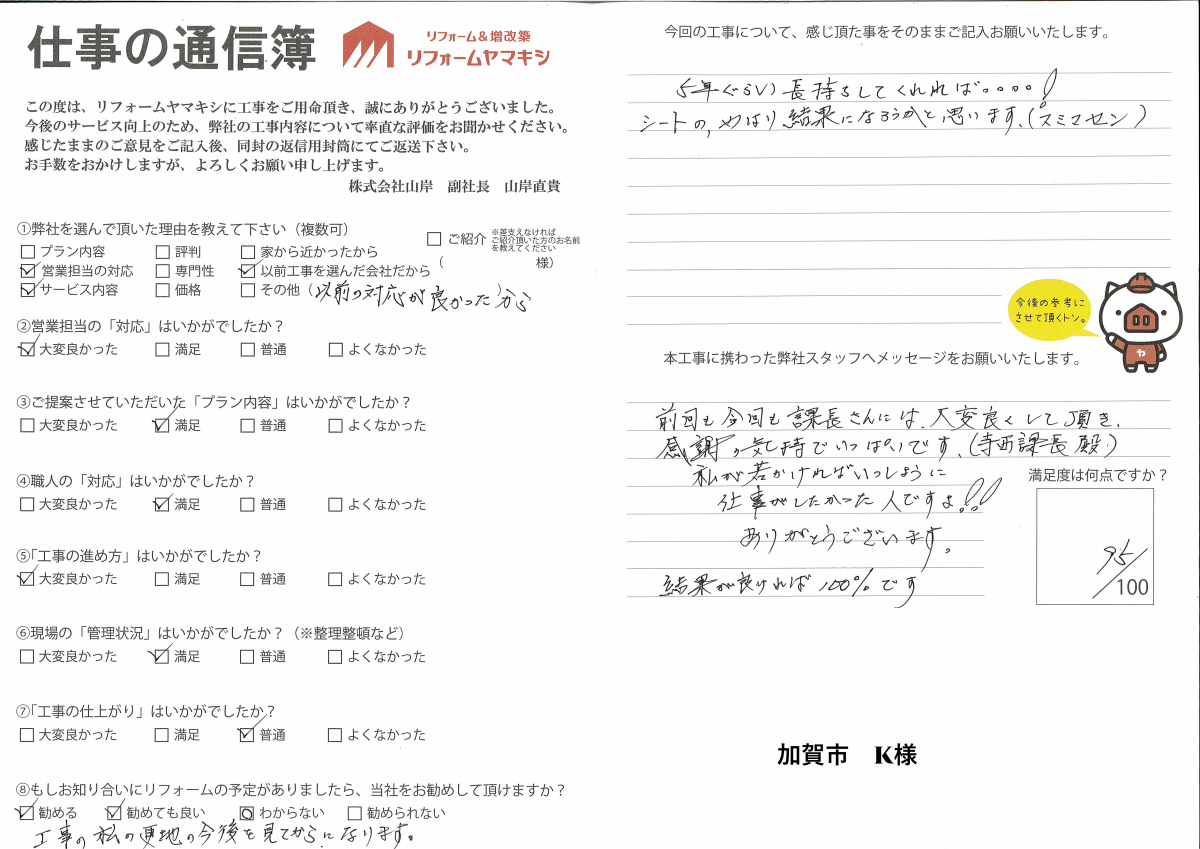 仕事の通信簿
リフォーム&増改築
リフォームヤマキシ
この度は、リフォームヤマキシに工事をご用命頂き、誠にありがとうございました。
今後のサービス向上のため、弊社の工事内容について率直な評価をお聞かせください。
感じたままのご意見をご記入後、同封の返信用封筒にてご返送下さい。
お手数をおかけしますが、よろしくお願い申し上げます。
株式会社山岸 副社長 山岸直貴
①弊社を選んで頂いた理由を教えて下さい（複数可）
□プラン内容 □評判 □家から近かったから
☑営業担当の対応 □専門性 ☑以前工事を選んだ会社だから
☑サービス内容 □価格 □その他（以前の対応が良かった）から
□ご紹介 ※差支えなければ
ご紹介頂いた方のお名前
を教えてください
（ 様）
②営業担当の「対応」はいかがでしたか？
☑大変良かった □満足 □普通 □よくなかった
③ご提案させていただいた「プラン内容」はいかがでしたか？
□大変良かった ☑満足 □普通 □よくなかった
④職人の「対応」はいかがでしたか？
□大変良かった ☑満足 □普通 □よくなかった
⑤「工事の進め方」はいかがでしたか？
☑大変良かった □満足 □普通 □よくなかった
⑥現場の「管理状況」はいかがでしたか？（※整理整頓など）
□大変良かった ☑満足 □普通 □よくなかった
⑦「工事の仕上がり」はいかがでしたか？
□大変良かった □満足 ☑普通 □よくなかった
⑧もしお知り合いにリフォームの予定がありましたら、当社をお勧めして頂けますか？
☑勧める ☑勧めても良い □わからない □勧められない
工事の私の更地の今後を見てからになります。
今回の工事について、感じ頂た事をそのままご記入お願いいたします。
5年ぐらい長持ちしてくれれば。。。。!
シートの,やはり結果になろうかと思います、(スミマセン)
今後の参考に
させて頂くトン。
ヤ
本工事に携わった弊社スタッフへメッセージをお願いいたします。
前回も今回も課長さんには、大変良くして頂き、
感謝の気持でいっぱいです、(寺西課長殿)
私が若かければいっしょうに
仕事がしたかった人ですよ!!
ありがとうございます。
結果が良ければ100%です
満足度は何点ですか？
95/100
加賀市 K様